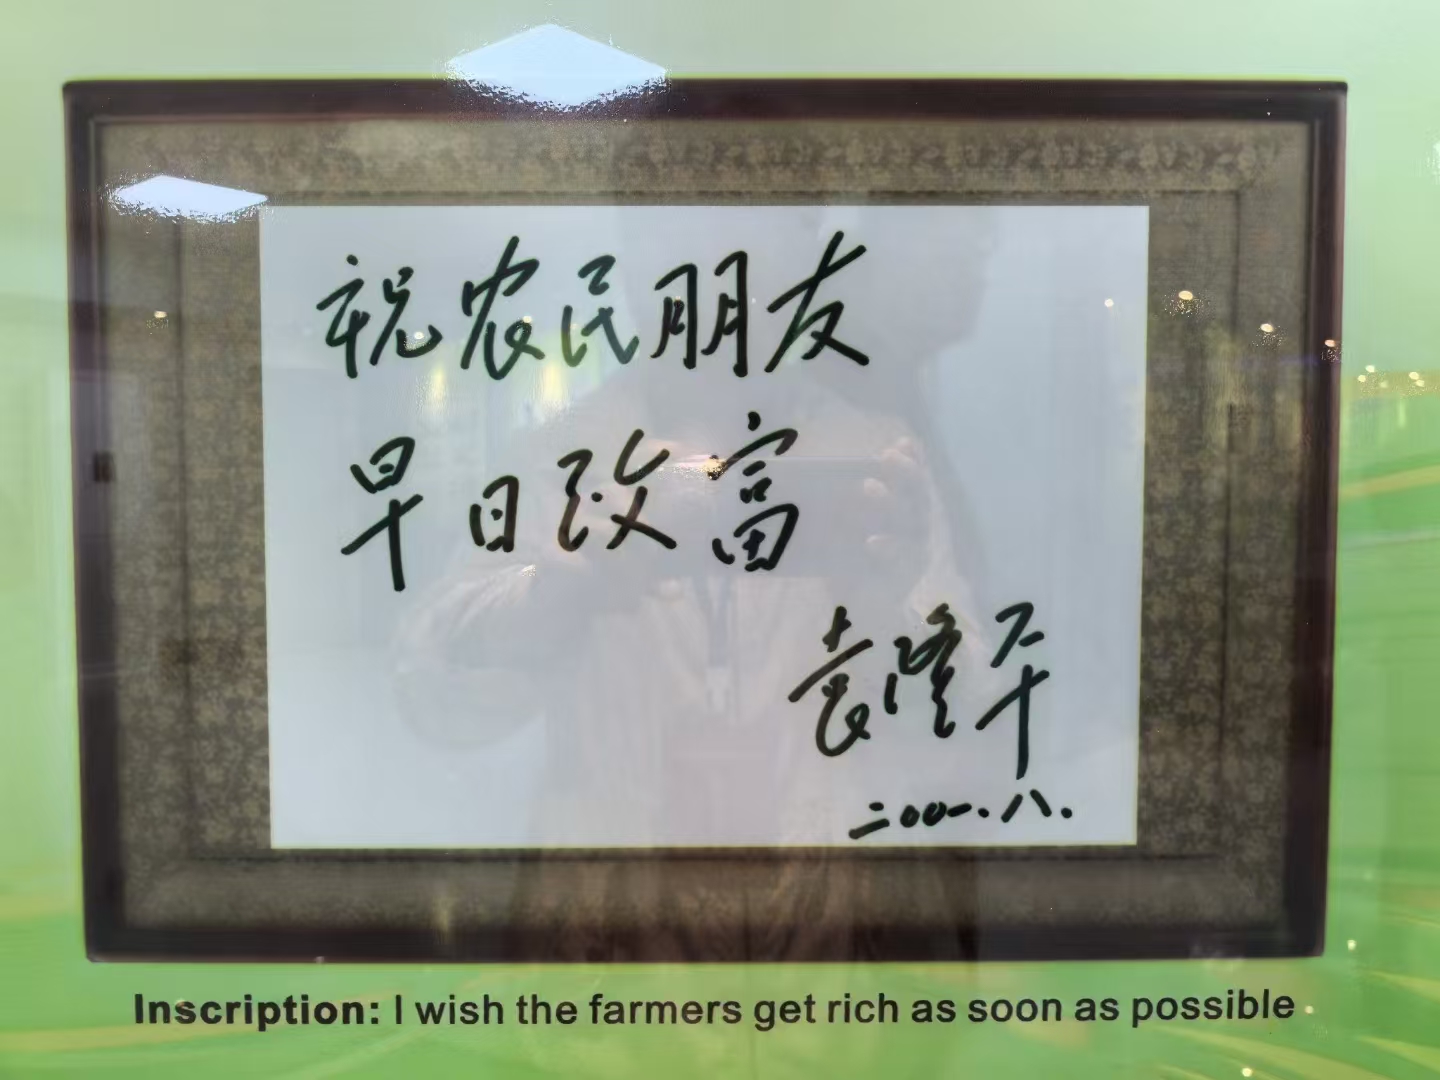 祝农民朋友
早日致富
袁隆平
二00一.八.
Inscription: I wish the farmers get rich as soon as possible